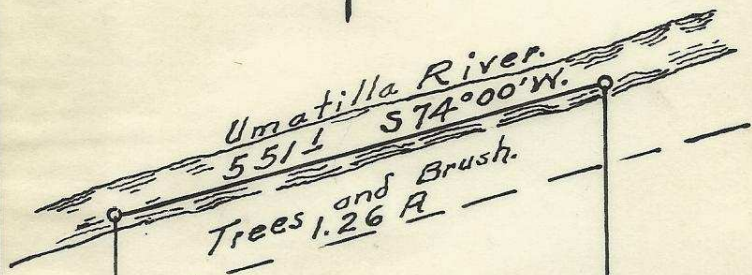 Umatilla River.
551 1 S74°00'W.
Trees and Brush.
1.26 A